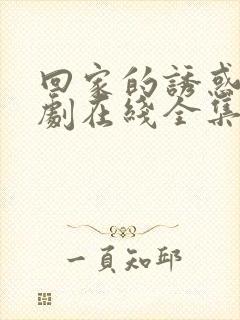 回家的誘惑
劇在綫全集
一頁知邱